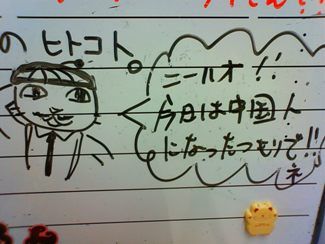 のヒトコト。
ニーハオ!!
今日は中国人
になったつもりで!!
ネ